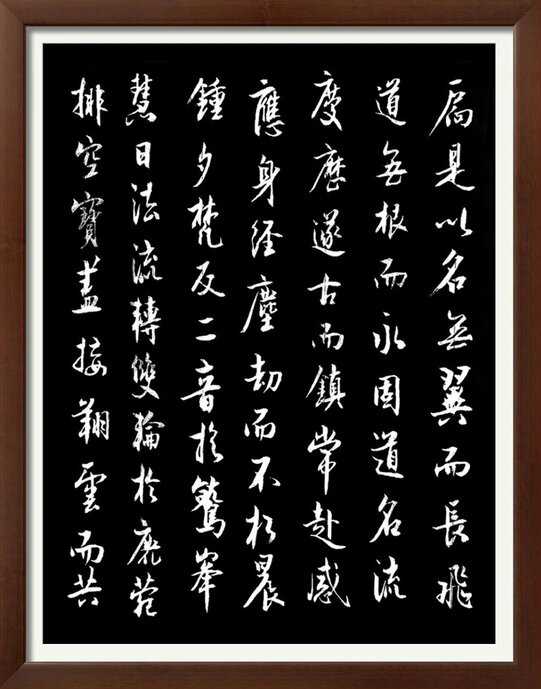 扃是以名無翼而長飛
道無根而永固道名流
慶歷遂古而鎮常赴感
應身經塵劫而不朽晨
鍾夕梵交二音於鷲峯
慧日法流轉雙輪於鹿菀
排空寶蓋接翔雲而共